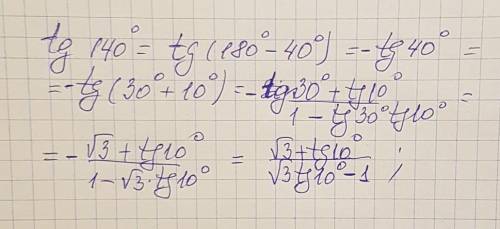 tg 140° = tg (180° - 40°) = - tg 40° =
= - tg (30° + 10°) = - (tg 30° + tg 10°) / (1 - tg 30° tg 10°) =
= - (√3 + tg 10°) / (1 - √3 · tg 10°) = (√3 + tg 10°) / (√3 tg 10° - 1) ;